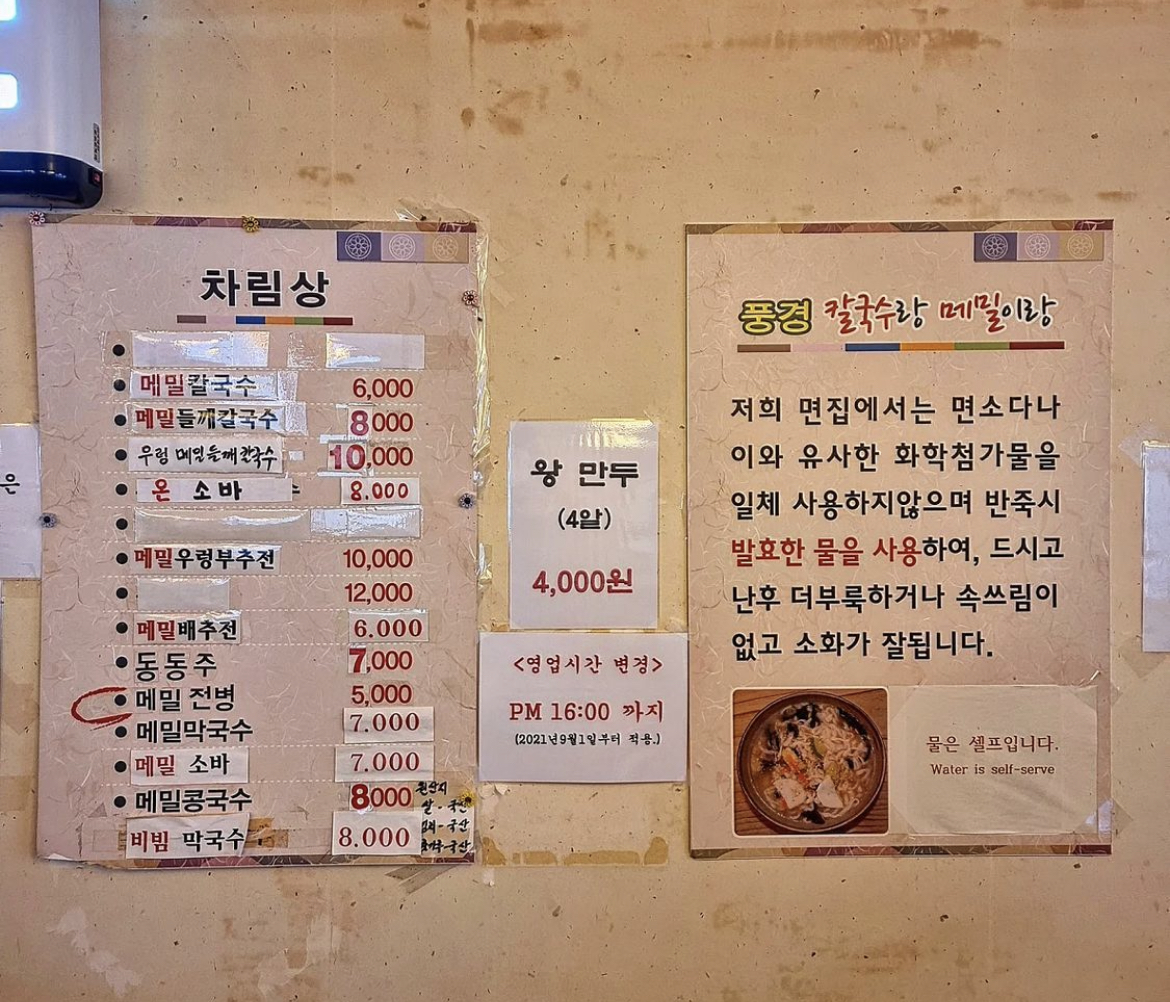 차림상
메밀칼국수 6,000
메밀들깨칼국수 8000
우렁 메밀들깨칼국수 10,000
온 소바 8.000
메밀우렁부추전 10,000
12,000
메밀배추전 6.000
동동주 7,000
메밀 전병 5,000
메밀막국수 7.000
메밀 소바 7.000
메밀콩국수 8000
비빔 막국수 8.000
원산지
쌀 - 국산
국산
국산
은
왕 만두
(4알)
4,000원
<영업시간 변경>
PM 16:00 까지
(2021년9월1일부터 적용.)
풍경 칼국수랑 메밀이랑
저희 면집에서는 면소다나
이와 유사한 화학첨가물을
일체 사용하지않으며 반죽시
발효한 물을 사용하여, 드시고
난후 더부룩하거나 속쓰림이
없고 소화가 잘됩니다.
물은 셀프입니다.
Water is self-serve